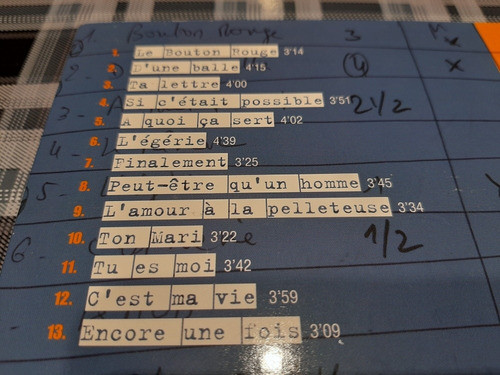 1. Bouton Rouge 3
1. Le Bouton Rouge 3'14
2. D'une balle 4'15 4 x
3. Ta lettre 4'00
4. Si c'était possible 3'51 2 1/2
5. A quoi ça sert 4'02
6. L'égérie 4'39
7. Finalement 3'25
8. Peut-être qu'un homme 3'45
9. L'amour à la pelleteuse 3'34
10. Ton Mari 3'22 1/2
11. Tu es moi 3'42
12. C'est ma vie 3'59
13. Encore une fois 3'09